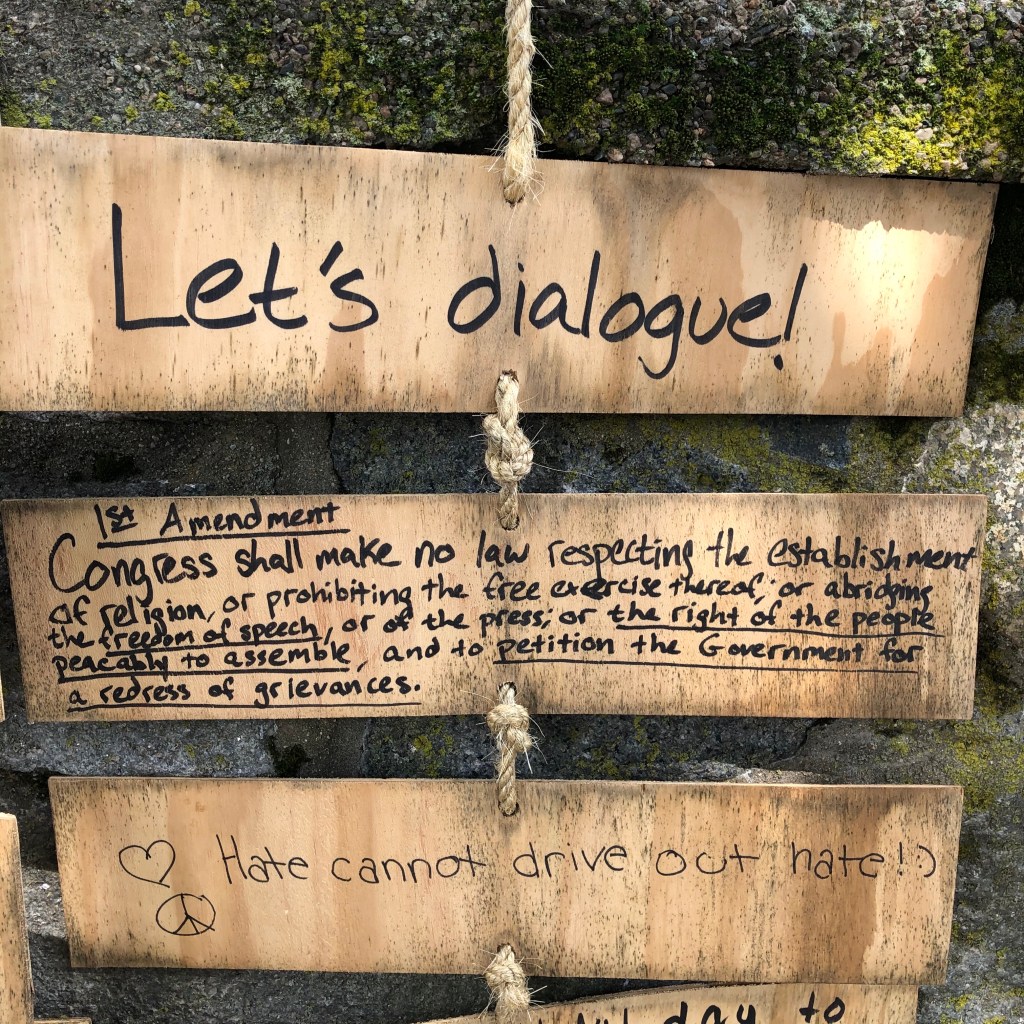 Let's dialogue!
1st Amendment
Congress shall make no law respecting the establishment
of religion, or prohibiting the free exercise thereof; or abridging
the freedom of speech, or of the press; or the right of the people
peacably to assemble, and to petition the Government for
a redress of grievances.
Hate cannot drive out hate! :)
day to